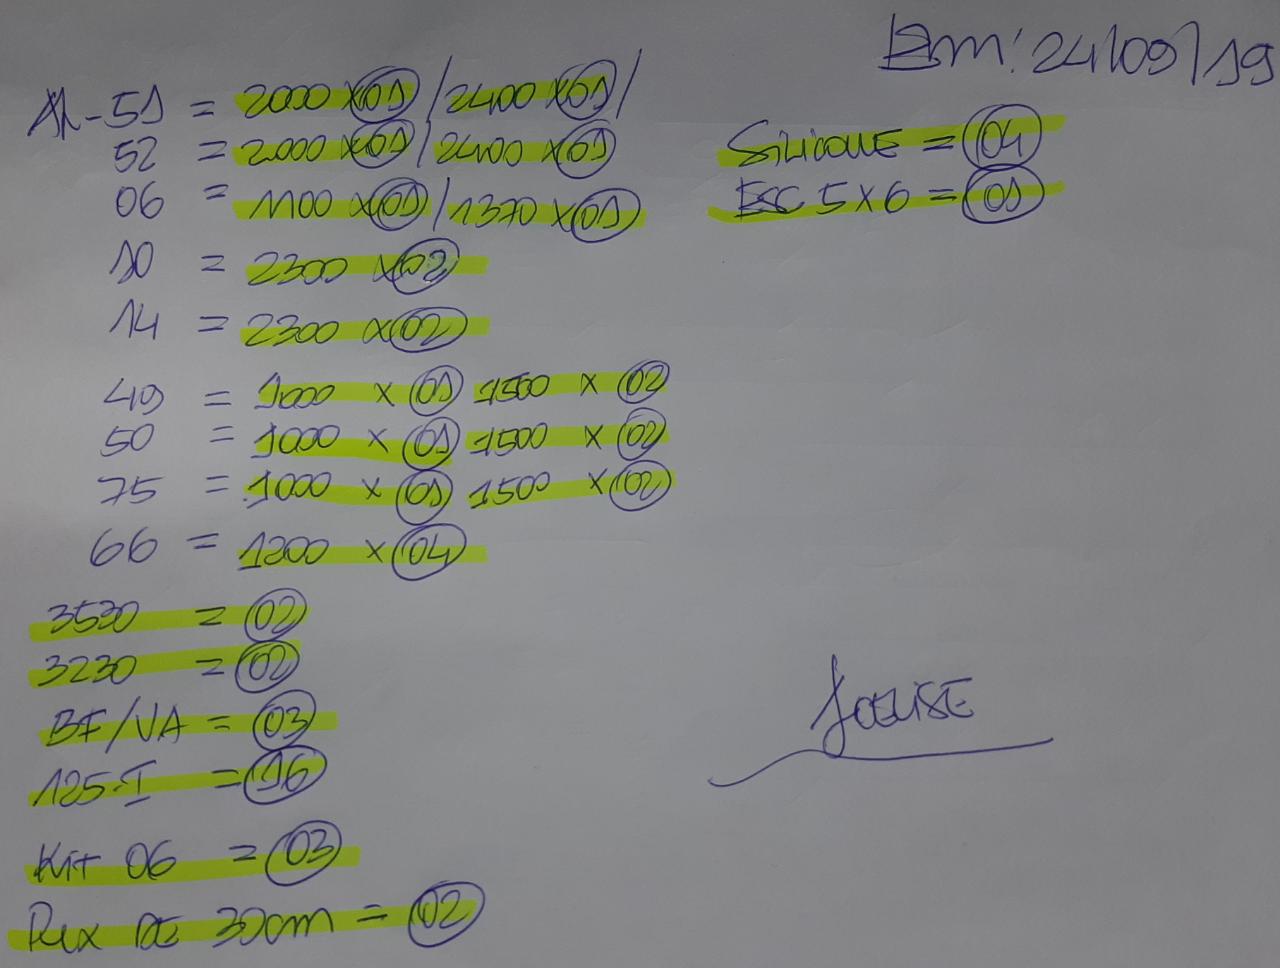 Em: 24/09/19
AL-51 = 2000 x 01 / 2400 x 01 /
52 = 2000 x 01 / 2400 x 01
06 = 1100 x 01 / 1370 x 01
10 = 2300 x 02
14 = 2300 x 02
49 = 1000 x 01 1500 x 02
50 = 1000 x 01 1500 x 02
75 = 1000 x 01 1500 x 02
66 = 1200 x 04
3530 = 02
3230 = 02
BF/VA = 03
125-I = 16
Kit 06 = 03
Pux DE 30cm = 02
Silicone = 04
ESC 5x6 = 01